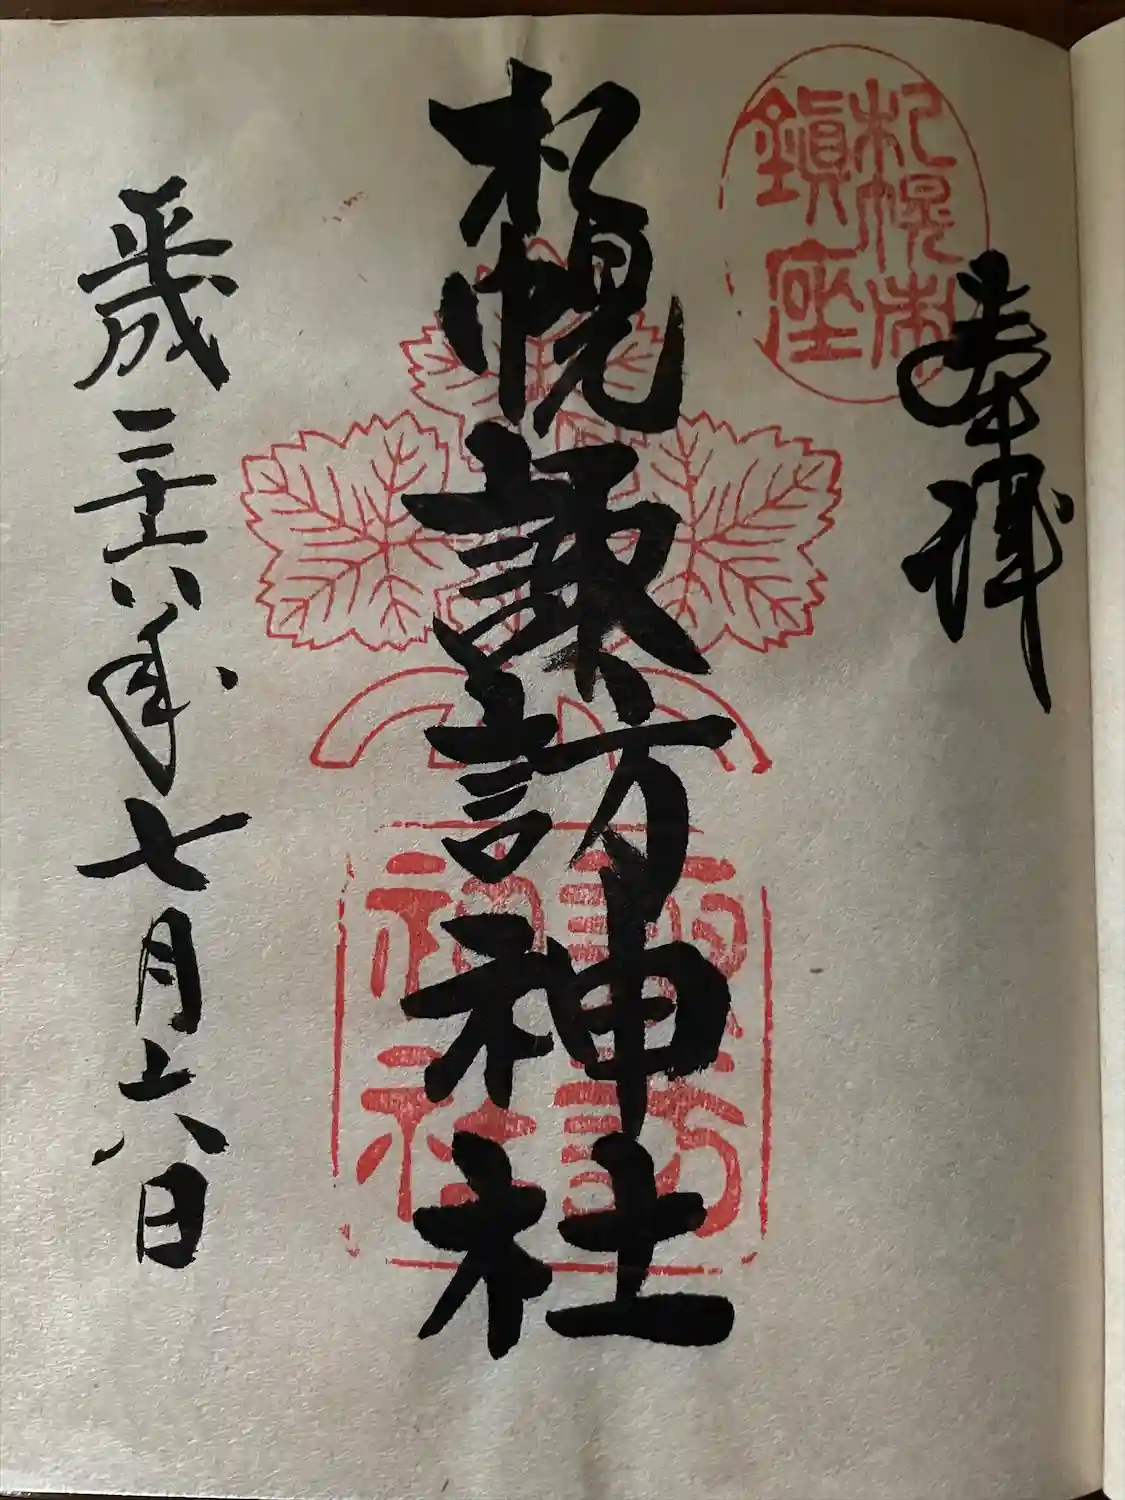 奉拝
札幌市
鎮座
札幌諏訪神社
諏訪
神社
平成二十六年七月六日